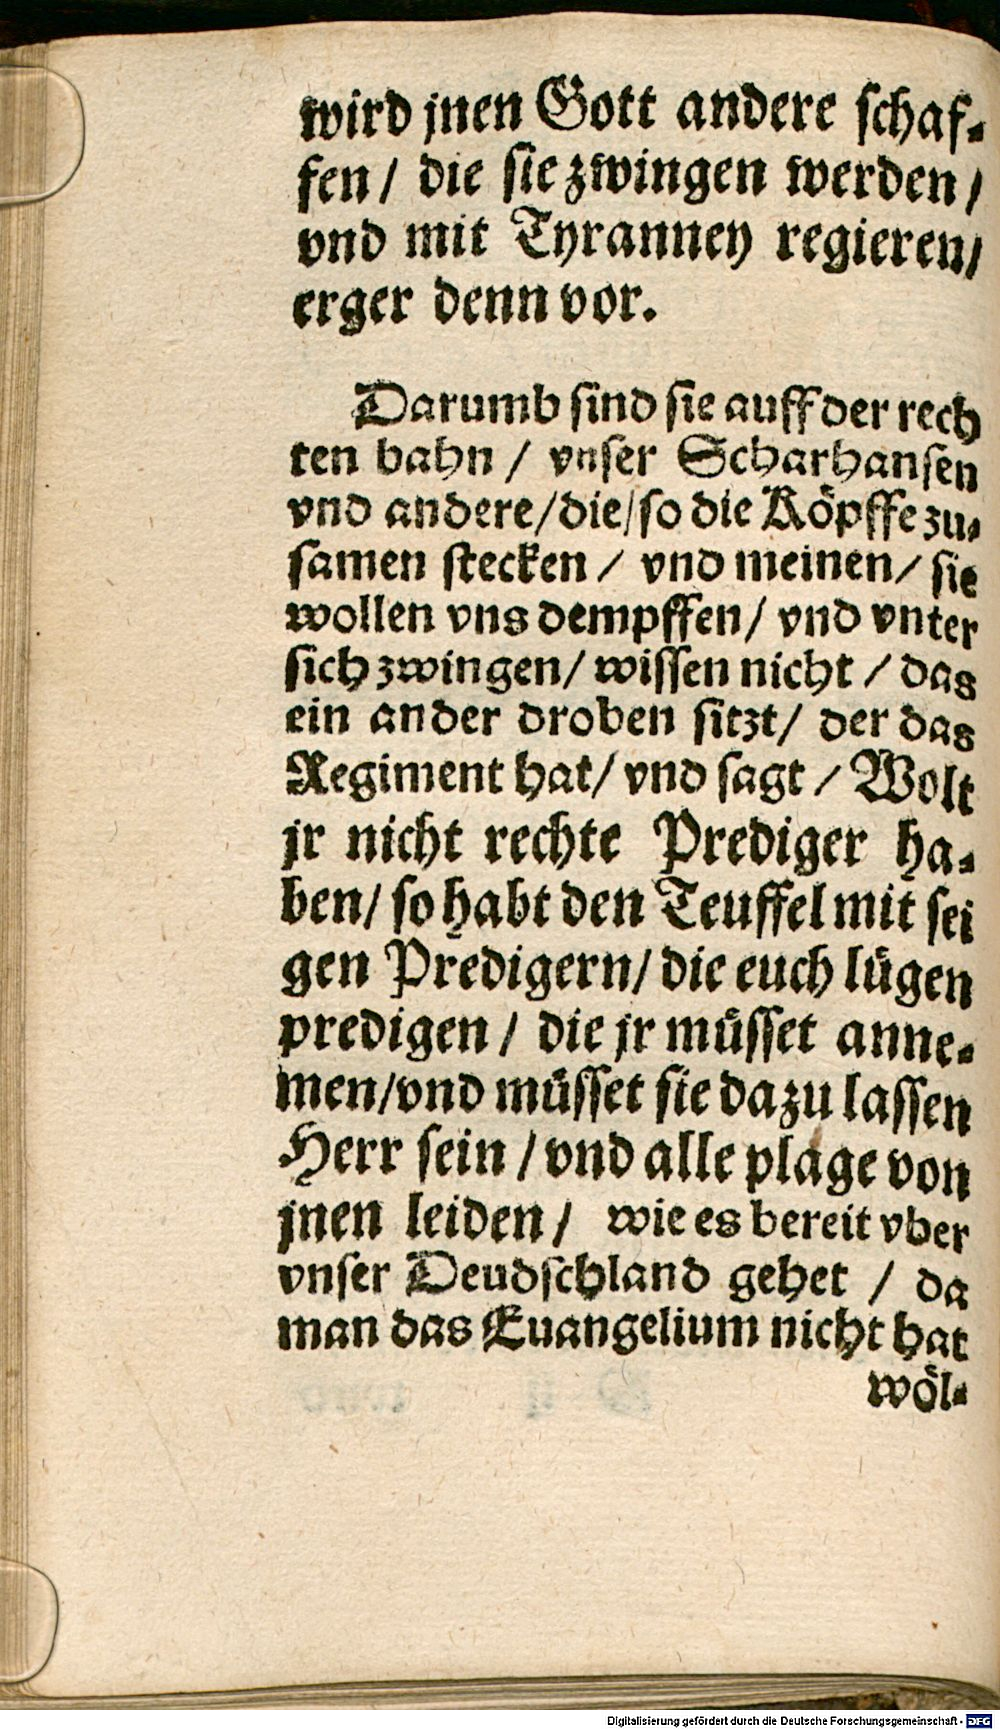 wird jnen Gott andere schaf-
fen/ die sie zwingen werden/
vnd mit Tyranney regieren/
erger denn vor.
Darumb sind sie auff der rech
ten bahn / vnser Scharhansen
vnd andere/die/so die Köpffe zu-
samen stecken / vnd meinen/ sie
wollen vns dempffen/ vnd vnter
sich zwingen/ wissen nicht / das
ein ander droben sitzt/ der das
Regiment hat/ vnd sagt / Wolt
jr nicht rechte Prediger ha-
ben/ so habt den Teuffel mit sei
gen Predigern/ die euch lügen
predigen / die jr müsset anne-
men/vnd müsset sie dazu lassen
Herr sein /vnd alle plage von
jnen leiden/ wie es bereit vber
vnser Deudschland gehet / da
man das Euangelium nicht hat
wöl-
Digitalisierung gefördert durch die Deutsche Forschungsgemeinschaft - DFG